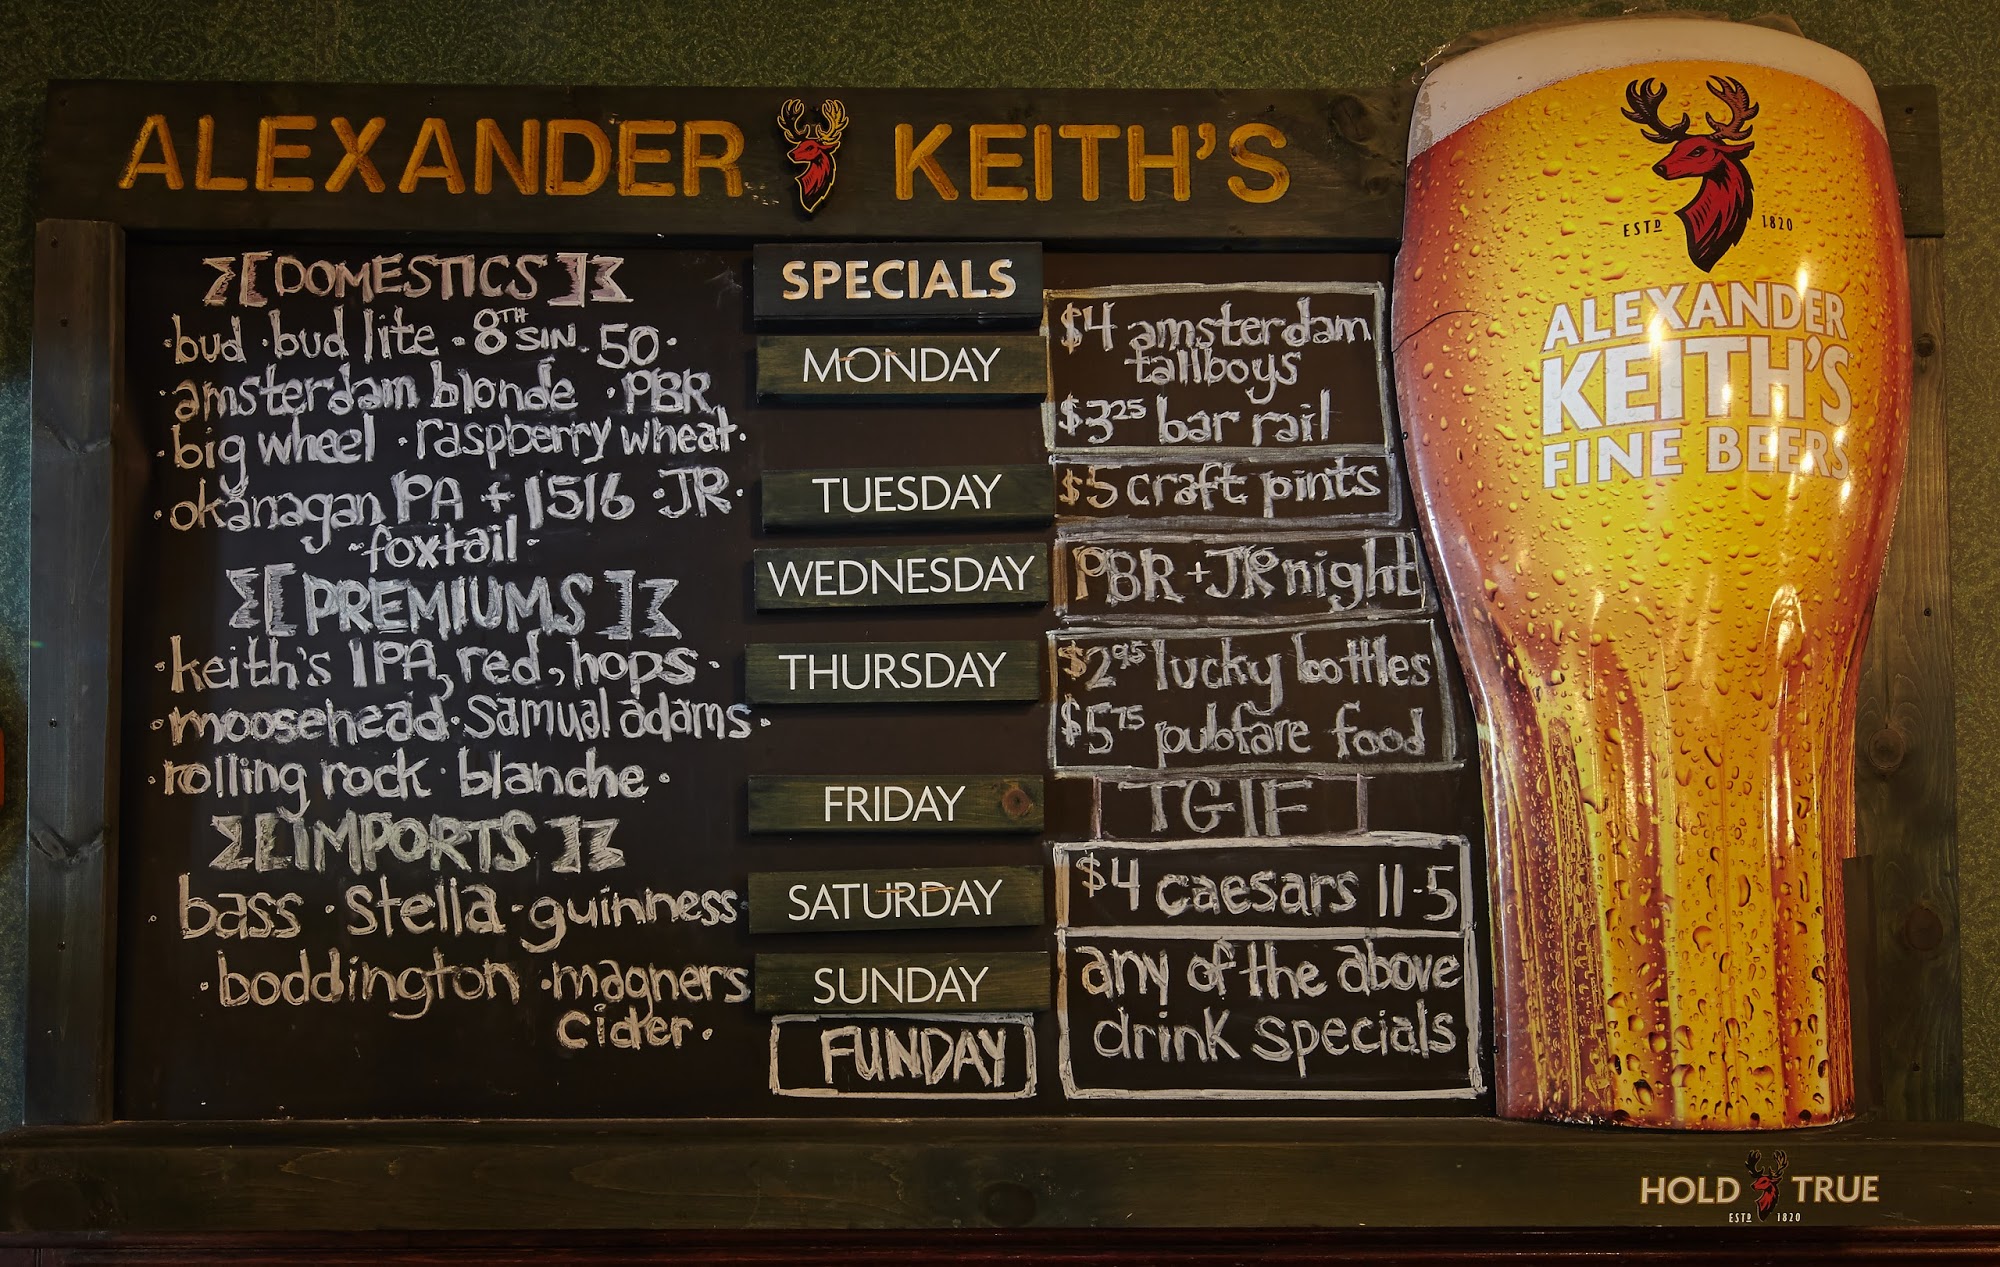 ALEXANDER KEITH'S
[DOMESTICS]
·bud ·bud lite ·8TH SIN. 50·
·amsterdam blonde ·PBR
·big wheel ·raspberry wheat·
·okanagan PA + 1516 ·JR·
·foxtail·
[PREMIUMS]
·keith's IPA, red, hops·
·moosehead·Samual adams·
·rolling rock·blanche·
[IMPORTS]
·bass·Stella·guinness
·boddington ·magners
cider·
SPECIALS
MONDAY
$4 amsterdam
tallboys
$3 25 bar rail
TUESDAY
$5 craft pints
WEDNESDAY
PBR + JR night
THURSDAY
$2 95 lucky bottles
$5 75 pubfare food
FRIDAY
TGIF
SATURDAY
$4 caesars 11-5
SUNDAY
FUNDAY
any of the above
drink specials
ESTD 1820
ALEXANDER
KEITH'S
FINE BEERS
HOLD TRUE
ESTD 1820